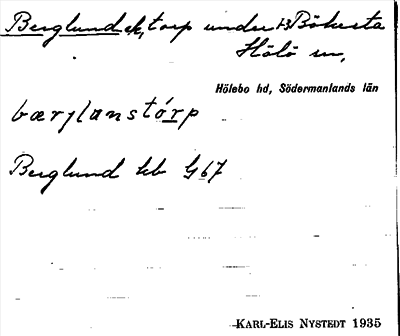 Berglund ek, torp under 13 Bökesta
Hölö sn,
Hölebo hd, Södermanlands län
bærjlanstórp
Berglund kb G67
KARL-ELIS NYSTEDT 1935